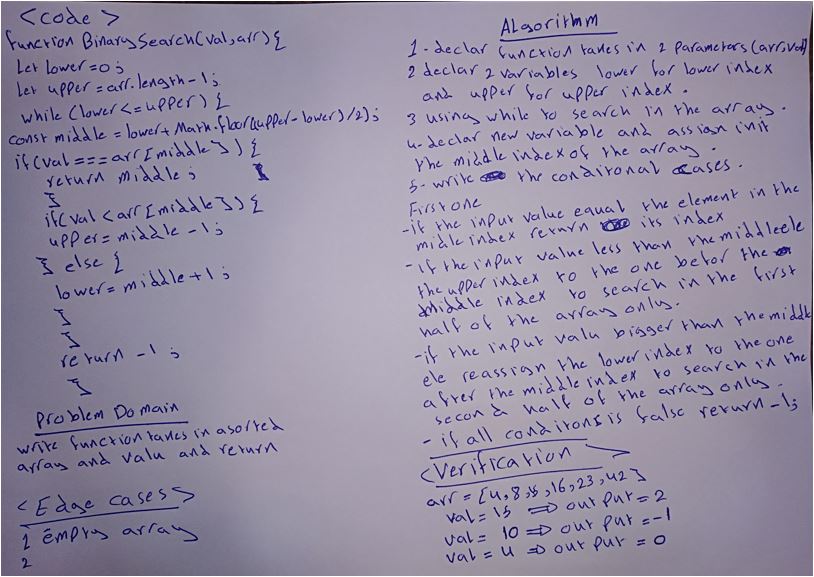 <code>
function BinarySearch(val,arr){
Let lower=0;
Let upper=arr.length-1;
while (lower<=upper) {
const middle = lower+Math.floor((upper-lower)/2);
if(val===arr[middle]) {
return middle;
}
if(val<arr[middle]) {
upper=middle-1;
} else {
lower=middle+1;
}
}
return -1;
}
Problem Domain
write function takes in a sorted
array and valu and return
<Edge cases>
1 empty array
2
ALgorithm
1- declar function takes in 2 Parameters(arr,val)
2 declar 2 variables lower for lower index
and upper for upper index.
3 using while to search in the array.
4- declar new variable and assign init
the middle index of the array.
5- write the conditonal cases.
First one
-if the input value equal the element in the
midle index return its index
-if the input value less than the middle ele
the upper index to the one befor the
middle index to search in the first
half of the array only.
-if the input valu bigger than the middle
ele reassign the lower index to the one
after the middle index to search in the
second half of the array only.
- if all conditons is false return -1;
<Verification>
arr = [4,8,15,16,23,42]
val= 15 => out put = 2
val= 10 => out put = -1
val = 4 => out put = 0